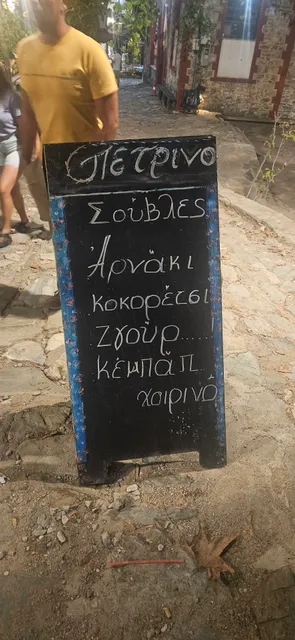 Πέτρινο
Σούβλες
Αρνάκι
κοκορέτσι
Ζγούρ.....
κέμπαπ..
χοιρινό